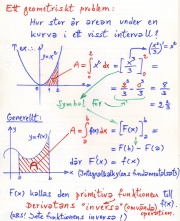 Ett geometriskt problem:
Hur stor är arean under en
kurva i ett visst intervall?
ex.:
y=x²
(x³/3)' = x²
A = ∫₀² x² dx = [x³/3]₀² =
= 2³/3 − 0³/3 = 8/3 =
2 2/3
Symbol för
Generellt:
y=f(x)
A
A = ∫ₐᵇ f(x) dx = [F(x)]ₐᵇ =
där F'(x) = f(x)
(Integralkalkylens fundamentalsats)
F(x) kallas den primitiva funktionen till
Derivatans "inversa" (omvända) operation.
(OBS! Inte funktionens inverse!)